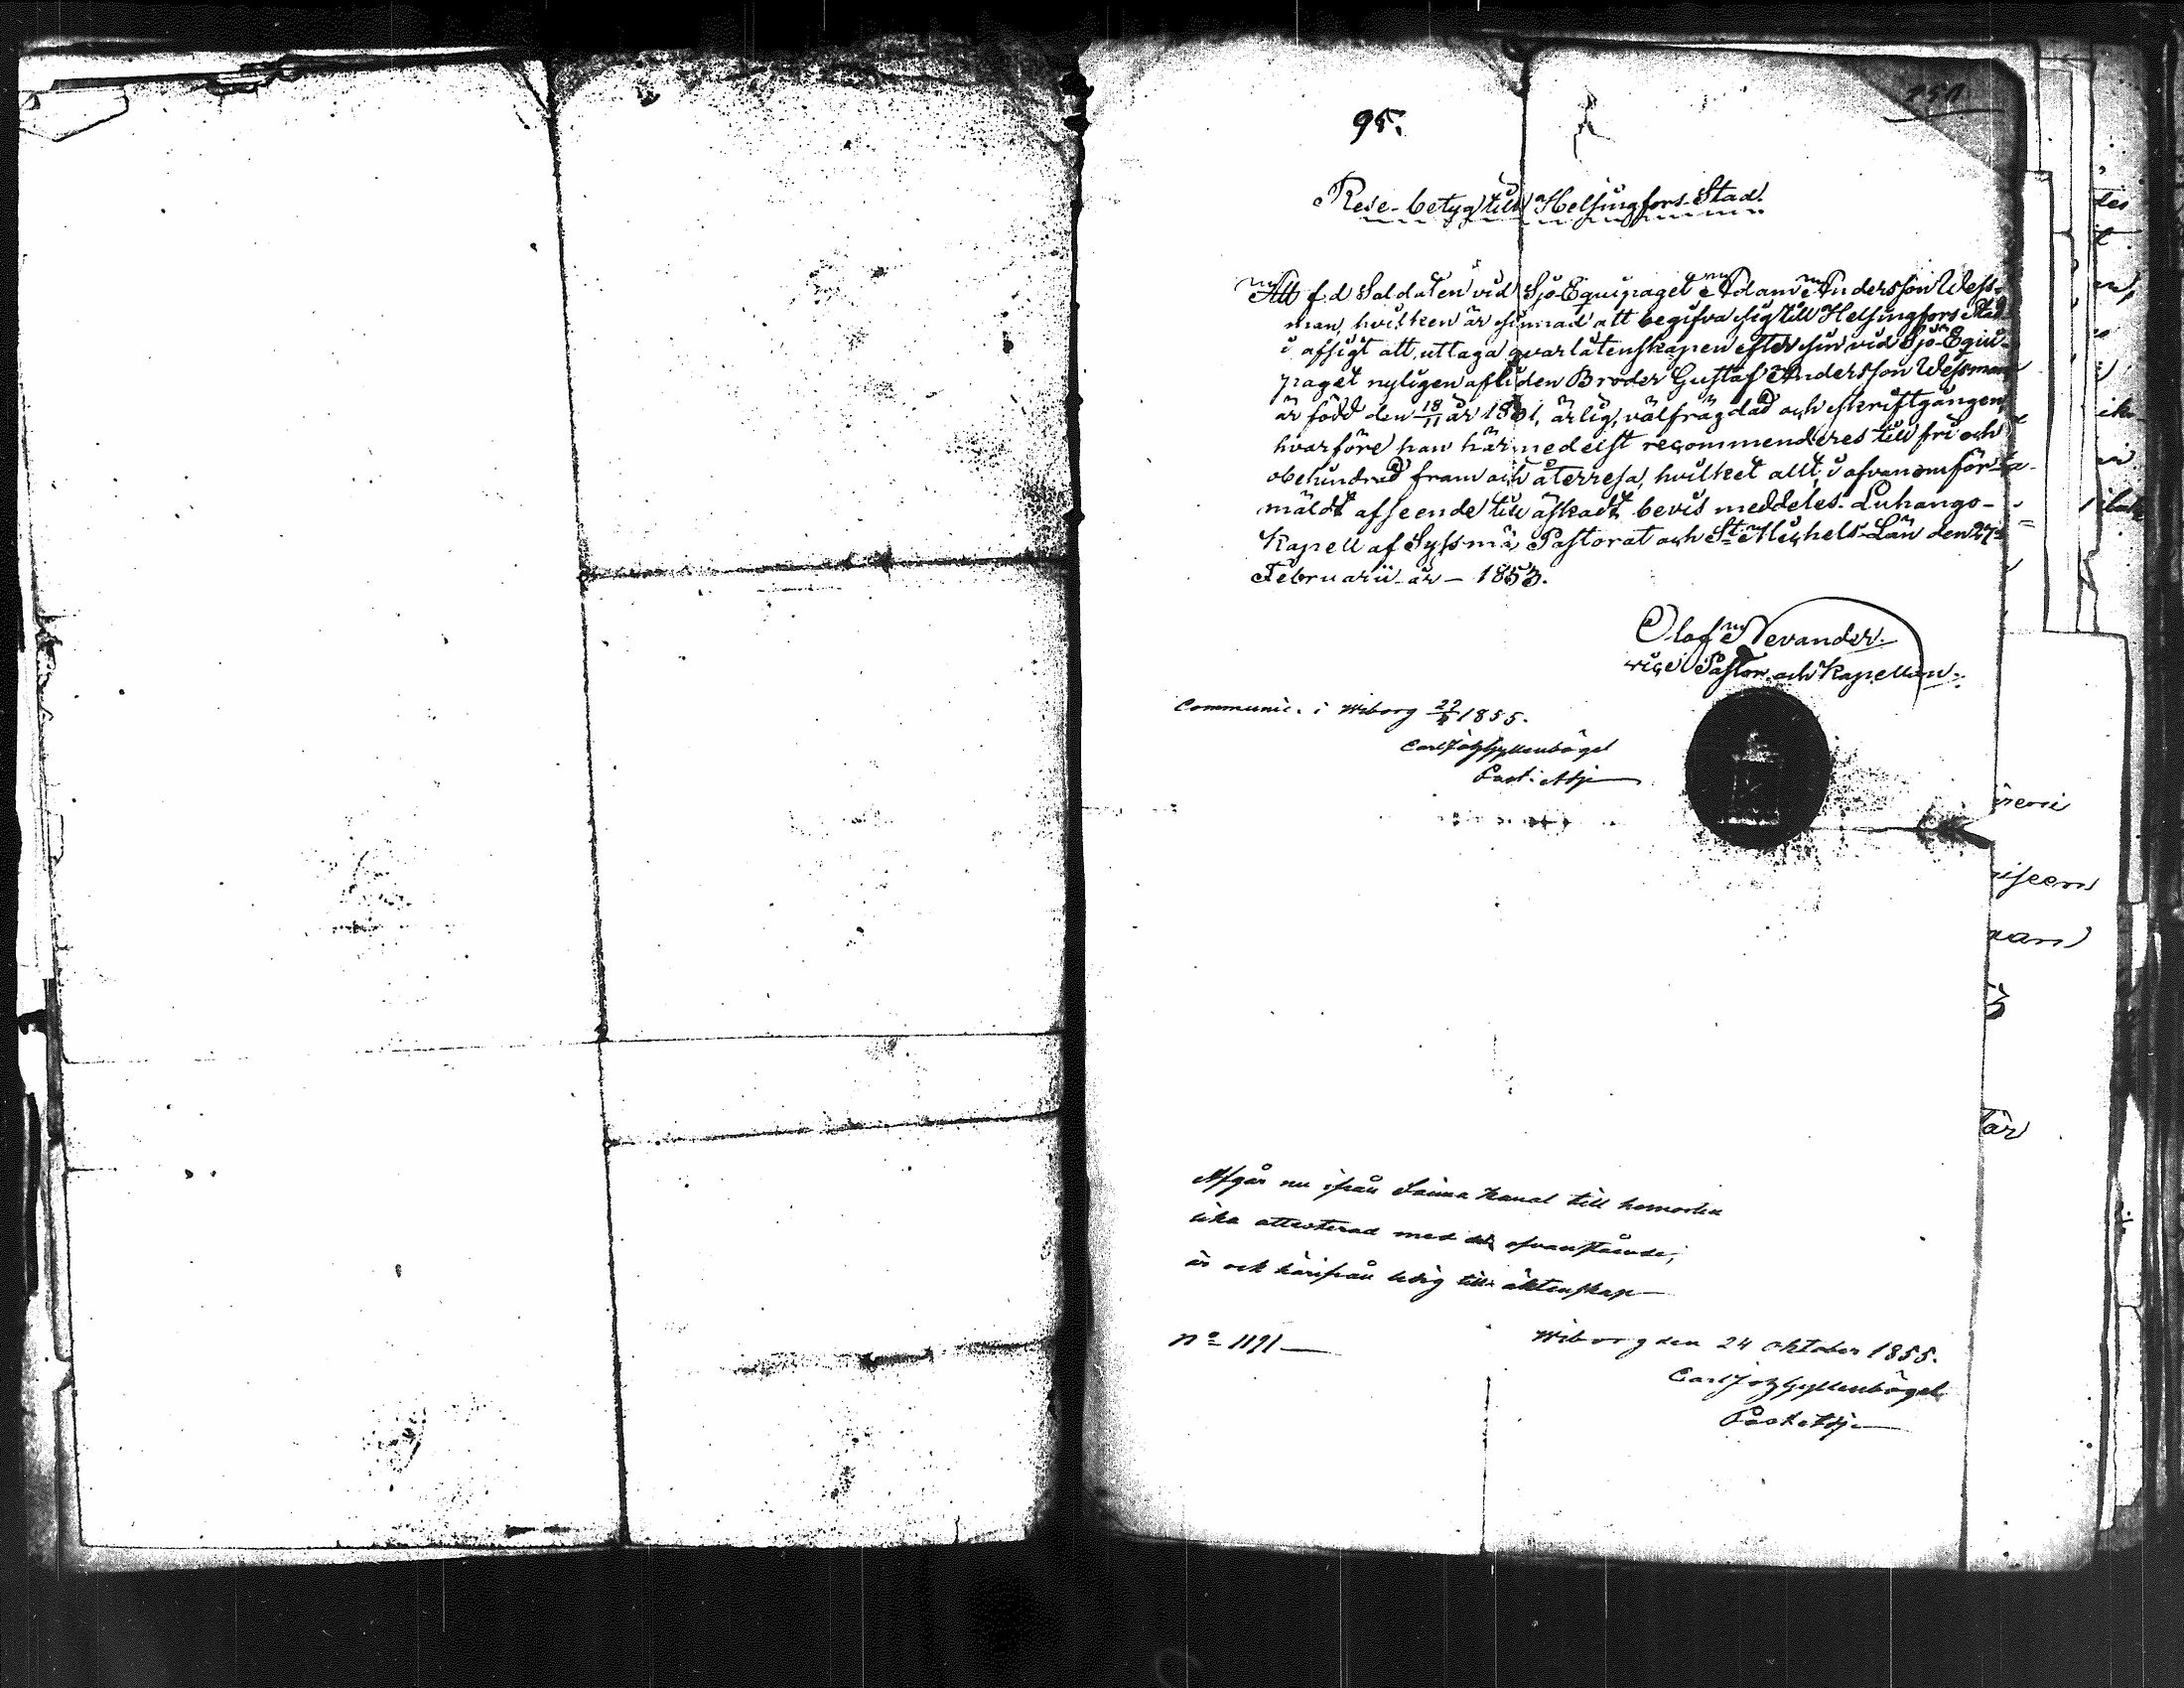 95.
151
Rese-betyg till Helsingfors Stad.
Att f.d Soldaten vid Sjö-Equipaget Adam Andersson Wess-
man, hvilken är sinnad att begifva sig till Helsingfors Stad
i afsigt att uttaga qvarlåtenskapen efter sin vid Sjö-Equi-
paget nyligen afliden Broder Gustaf Andersson Wessman
är född den 18/11 år 1831, ärlig, välfrägdad och skriftgången,
hvarföre han härmedelst recommenderes till fri och
obehindrad fram och återresa, hvilket allt, i ofvanomför-
mäldt afseende till äskadt bevis meddeles. Luhango-
Kapell af Syssmä Pastorat och St Michels-Län den 27
Februarii år - 1853.
Olof Nevander
vice Pastor och Kapellan.
Communic. i Wiborg 29/ 1855.
Carl Joh Gyllenbögel
Past. Adj
Afgår nu ifrån Saima Kanal till hemorten
lika attesterad med det ofvanstående,
är ock härifrån ledig till äktenskap
No 1191
Wiborg den 24 Oktober 1855.
Carl Joh Gyllenbögel
Past. Adj.